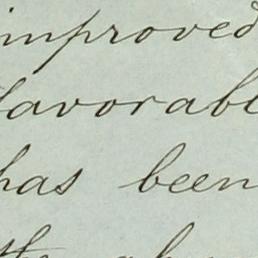 improved
favorabl
has been
the